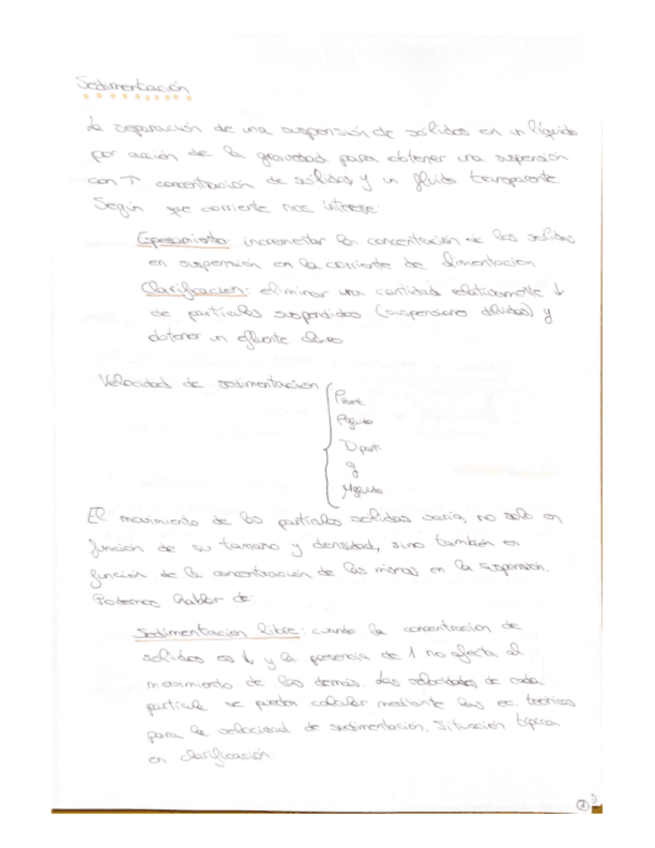 Sedimentación
La separación de una suspensión de sólidos en un líquido
por acción de la gravedad para obtener una suspensión
con ↑ concentración de sólidos y un fluido transparente.
Según que corriente nos interese:
Espesamiento: incrementar la concentración de los sólidos
en suspensión en la corriente de alimentación
Clarificación: eliminar una cantidad relativamente ↓
de partículas suspendidas (suspensiones diluidas) y
obtener un efluente claro
Velocidad de sedimentación
ρpart
ρfluido
Dpart
g
μfluido
El movimiento de las partículas sólidas varía, no solo en
función de su tamaño y densidad, sino también en
función de la concentración de las mismas en la suspensión.
Podemos hablar de:
Sedimentación libre: cuando la concentración de
sólidos es ↓ y la presencia de 1 no afecta al
movimiento de las demás. Las velocidades de cada
partícula se pueden calcular mediante las ec. teóricas
para la velocidad de sedimentación. Situación típica
en clarificación.
1